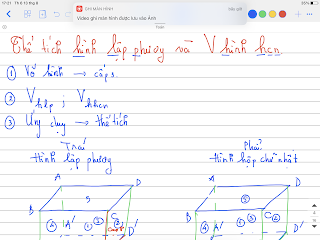 17:31 Thứ 6 13 thg 8
35%
GHI MÀN HÌNH
Video ghi màn hình được lưu vào Ảnh
Thể tích hình lập phương và V hình hcn
① Vở hình → cấp s
② Vhlp ; Vhhcn
③ Ứng dụng → thể tích
Trái
Hình lập phương
Phải
Hình hộp chữ nhật
A D
A D
S
B C
B C
A' D'
A' D'